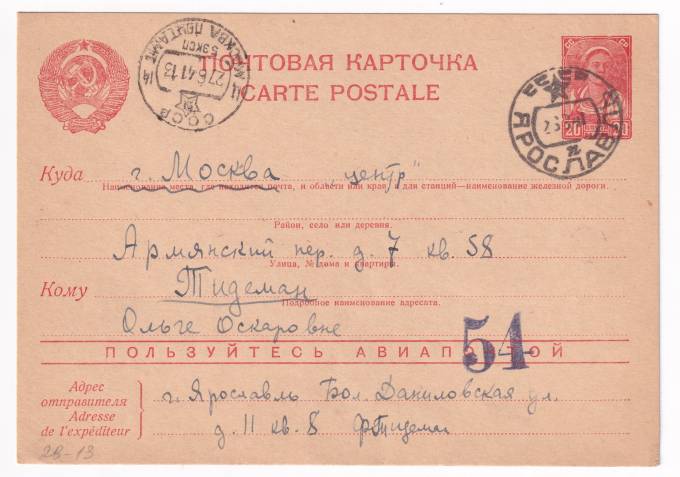 ПОЧТОВАЯ КАРТОЧКА
CARTE POSTALE
МОСКВА ПОЧТАМТ
5 эксп
27.6.41.13
СССР
СССР
ЯРОСЛАВЛЬ
20 20
Куда г. Москва „центр"
Наименование места, где находится почта, и области или края, а для станций—наименование железной дороги.
Район, село или деревня.
Армянский пер. д. 7 кв. 58
Улица, № дома и квартиры.
Кому Тидеман
Подробное наименование адресата.
Ольге Оскаровне
54
ПОЛЬЗУЙТЕСЬ АВИАПОЧТОЙ
Адрес
отправителя
Adresse
de l'expéditeur
г. Ярославль Бол. Даниловская ул.
д. 11 кв. 8 Ф Тидеман
28-13